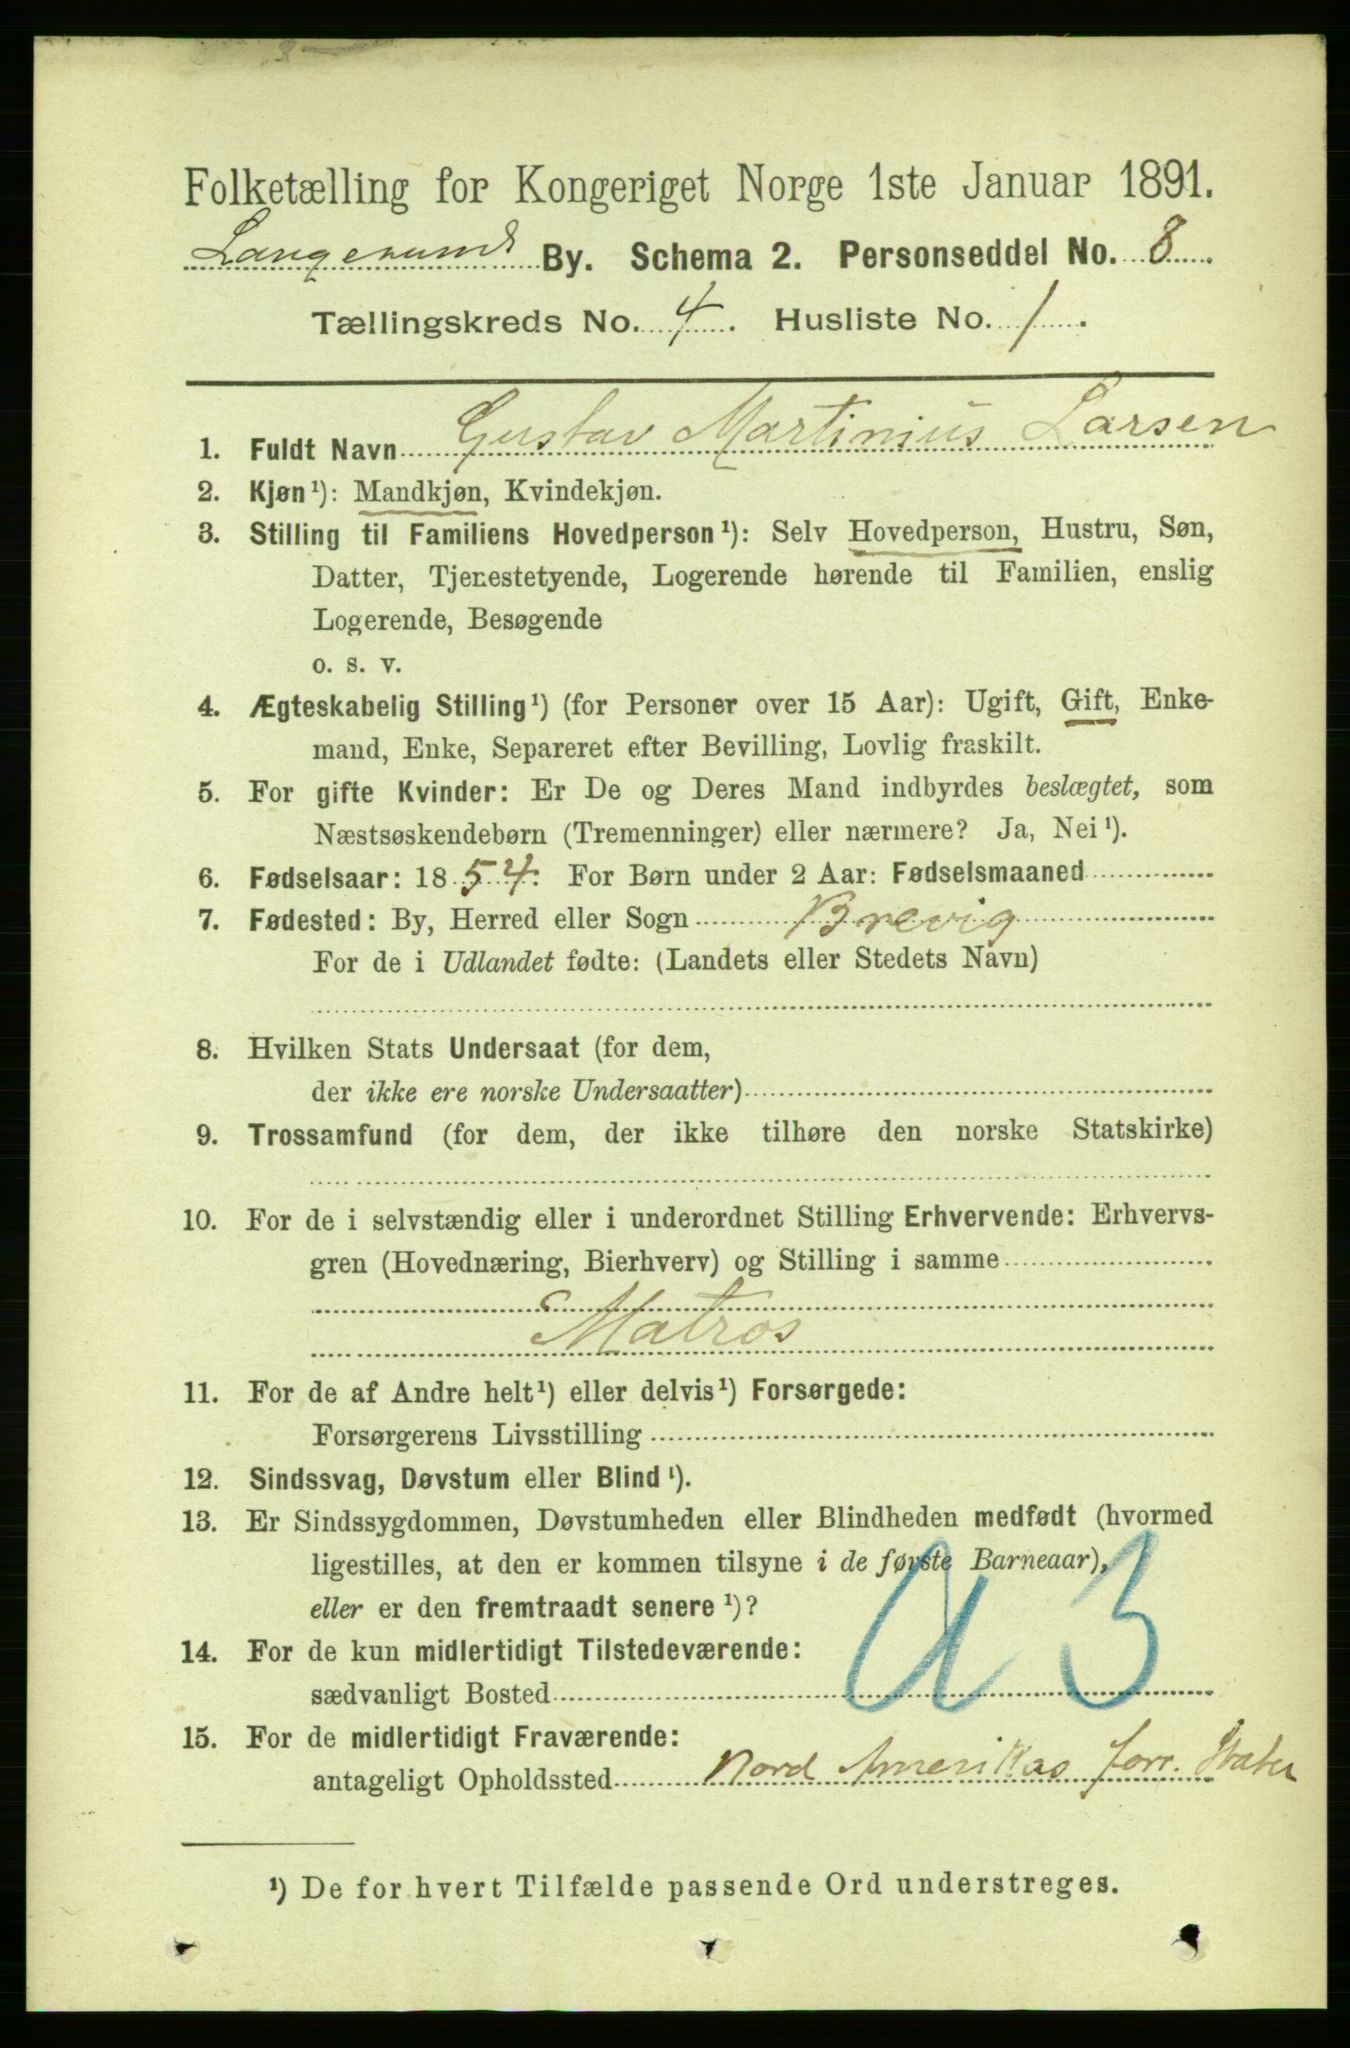 Folketælling for Kongeriget Norge 1ste Januar 1891.
Langesund By. Schema 2. Personseddel No. 8
Tællingskreds No. 4. Husliste No. 1.
1. Fuldt Navn Gustav Martinius Larsen
2. Kjøn¹): Mandkjøn, Kvindekjøn.
3. Stilling til Familiens Hovedperson¹): Selv Hovedperson, Hustru, Søn,
Datter, Tjenestetyende, Logerende hørende til Familien, enslig
Logerende, Besøgende
o. s. v.
4. Ægteskabelig Stilling¹) (for Personer over 15 Aar): Ugift, Gift, Enke-
mand, Enke, Separeret efter Bevilling, Lovlig fraskilt.
5. For gifte Kvinder: Er De og Deres Mand indbyrdes beslægtet, som
Næstsøskendebørn (Tremenninger) eller nærmere? Ja, Nei¹).
6. Fødselsaar: 1854. For Børn under 2 Aar: Fødselsmaaned
7. Fødested: By, Herred eller Sogn Brevig
For de i Udlandet fødte: (Landets eller Stedets Navn)
8. Hvilken Stats Undersaat (for dem,
der ikke ere norske Undersaatter)
9. Trossamfund (for dem, der ikke tilhøre den norske Statskirke)
10. For de i selvstændig eller i underordnet Stilling Erhvervende: Erhvervs-
gren (Hovednæring, Bierhverv) og Stilling i samme
Matros
11. For de af Andre helt¹) eller delvis¹) Forsørgede:
Forsørgerens Livsstilling
12. Sindssvag, Døvstum eller Blind¹).
13. Er Sindssygdommen, Døvstumheden eller Blindheden medfødt (hvormed
ligestilles, at den er kommen tilsyne i de første Barneaar),
eller er den fremtraadt senere¹)?
a 3
14. For de kun midlertidigt Tilstedeværende:
sædvanligt Bosted
15. For de midlertidigt Fraværende:
antageligt Opholdssted Nord Amerikas forr. Stater
¹) De for hvert Tilfælde passende Ord understreges.